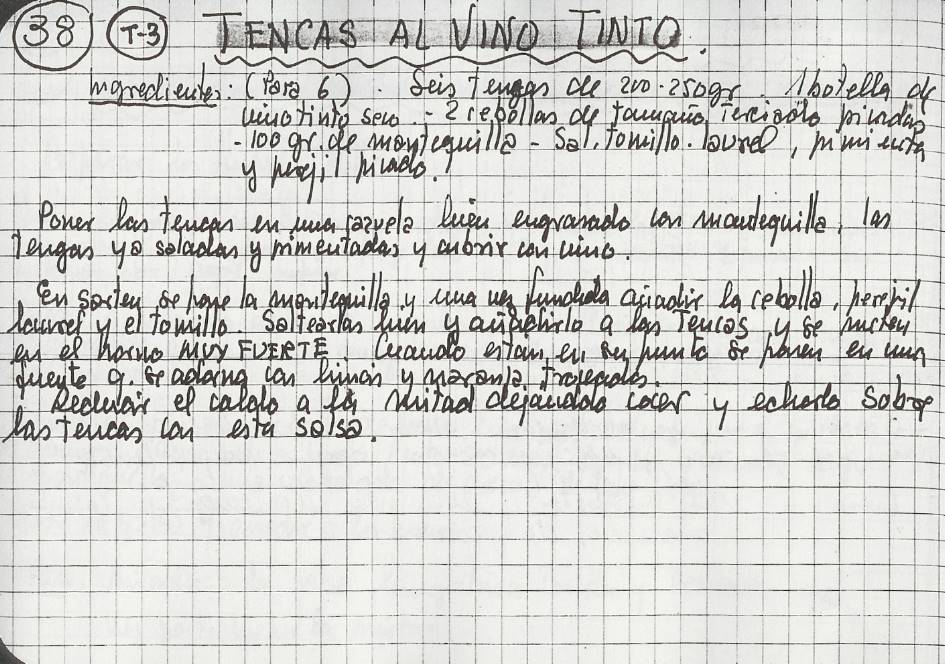 38 T-3 TENCAS AL VINO TINTO.
Ingredientes: (Para 6). Seis Tengas de 200-250gr. 1 botella de
vino tinto seco. - 2 cebollas de tamaño Terciado picadas
- 100 gr. de mantequilla - Sal, Tomillo. laurel, pimienta
y perejil picado.
Poner las Tencas en una cazuela bien engrasado con mantequilla, las
Tengas ya saladas y pimentadas y cubrir con vino.
En sarten, se pone la mantequilla y una vez fundida añadir la cebolla, perejil
laurel y el Tomillo. Saltearlas bien y añadirlo a las Tencas y se meten
en el horno MUY FUERTE. Cuando estan en su punto se ponen en una
fuente q. se adorna con limon y naranja Trojeados.
Reducir el caldo a la mitad dejandolo cocer y echarlo sobre
las Tencas con esta salsa.